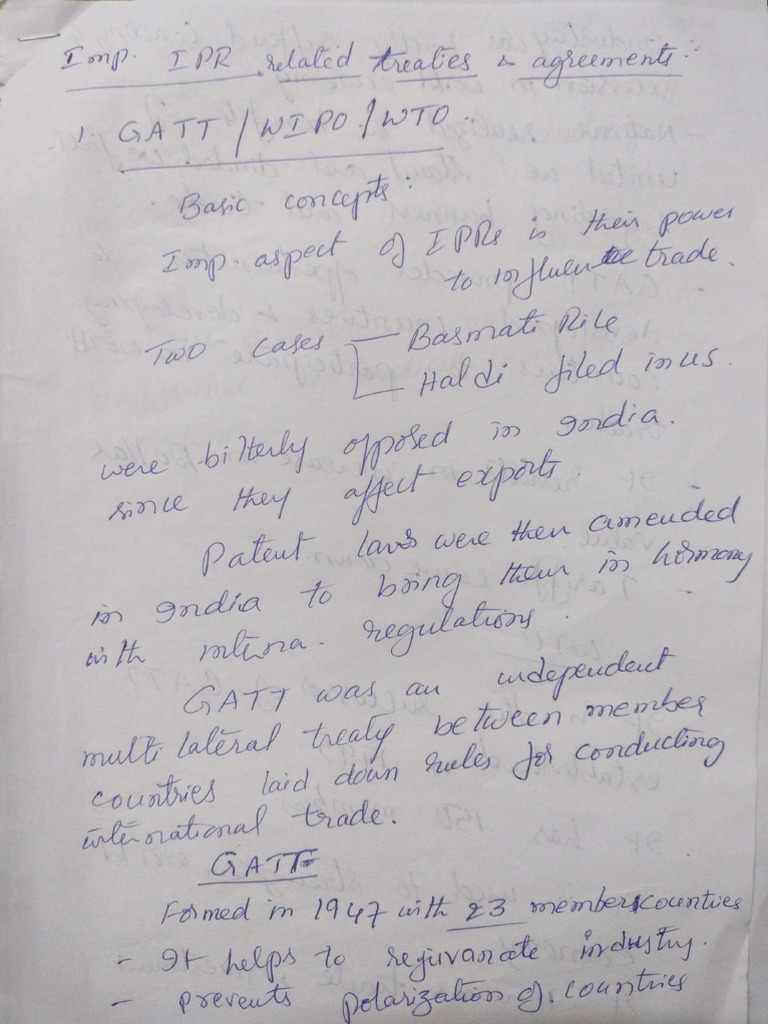 Imp. IPR related treaties & agreements:
1 GATT / WIPO / WTO
Basic concepts:
Imp. aspect of IPRs is their power
to influence trade.
Two cases Basmati Rice
Haldi filed in US.
were bitterly opposed in India.
since they affect exports.
Patent laws were then amended
in India to bring them in hormony
with interna. regulations.
GATT was an independent
multilateral treaty between member
countries laid down rules for conducting
international trade.
GATT
Formed in 1947 with 23 members counties
- It helps to rejuvanate industry.
- prevents polarization of countries